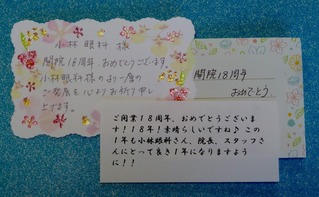 小林 眼科 様
開院18周年、おめでとうございます。
小林眼科様のより一層の
ご発展を心よりお祈り申し
上げます。
開院18周年
おめでとう
ご開業18周年、おめでとうございま
す!18年!素晴らしいですね♪ この
1年も小林眼科さん、院長、スタッフさ
んにとって良き1年になりますよう
に!!